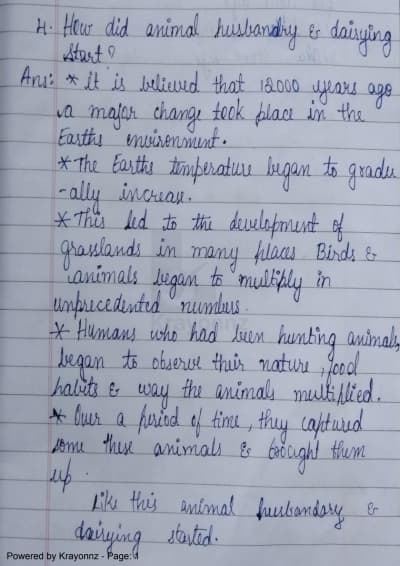 4. How did animal husbandry & dairying
start?
Ans: * it is believed that 12000 years ago
a major change took place in the
Earths environment.
* The Earths temperature began to gradu
-ally increase.
* This led to the development of
grasslands in many places Birds &
animals began to multiply in
unprecedented numbers.
* Humans who had been hunting animals,
began to observe their nature, food
habits & way the animals multiplied.
* Over a period of time, they captured
some these animals & brought them
up.
Like this animal husbandary &
dairying started.
Powered by Krayonnz - Page: 1